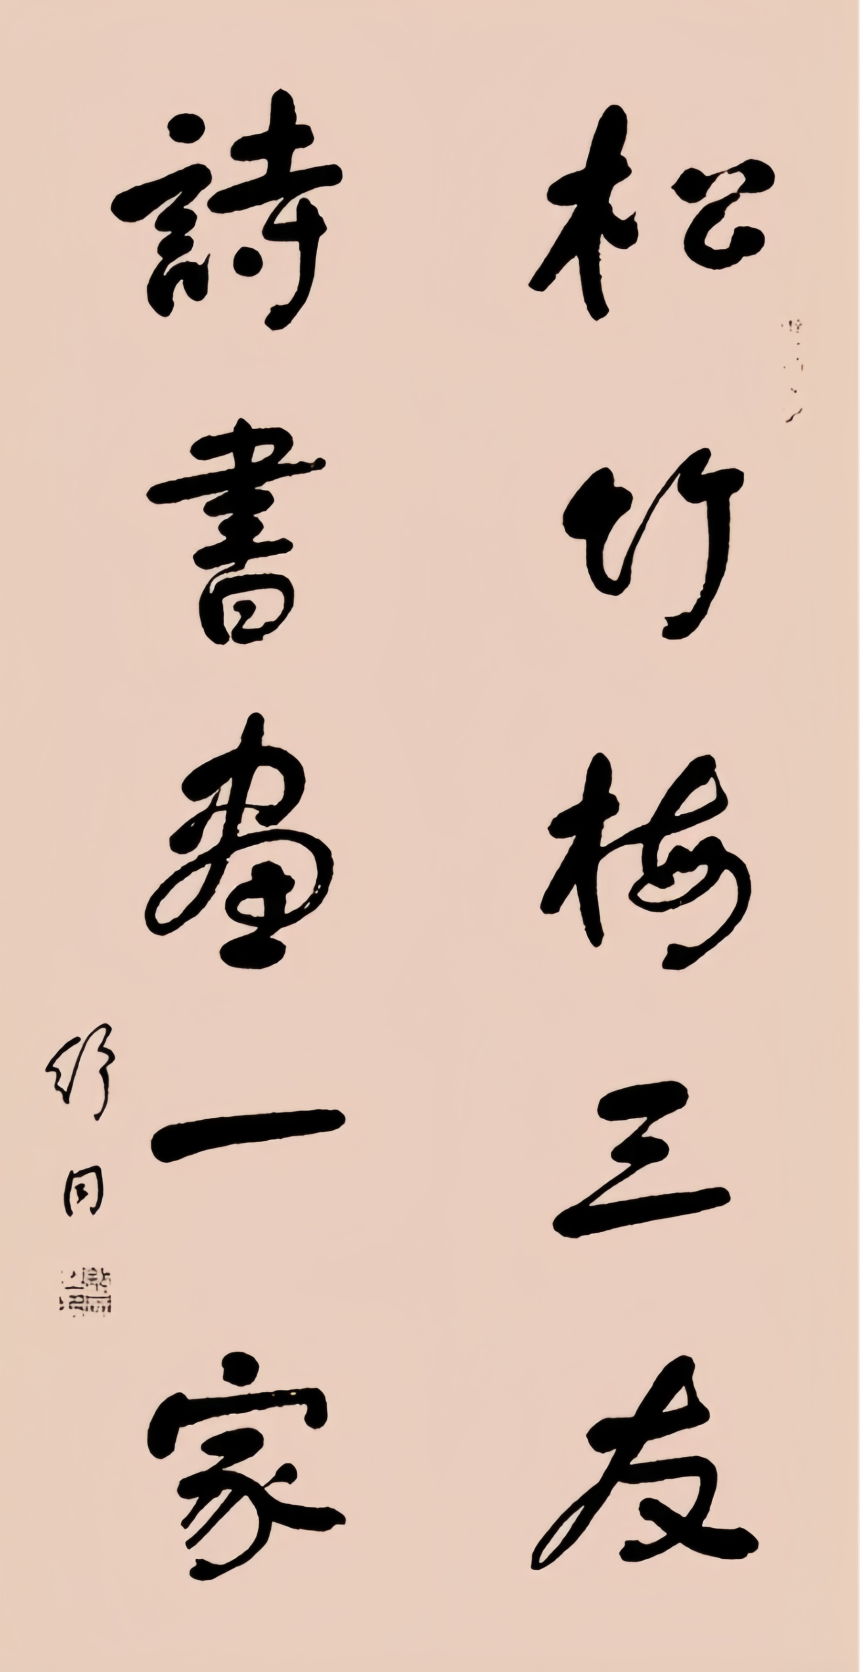 松竹梅三友
詩書畫一家
舒同